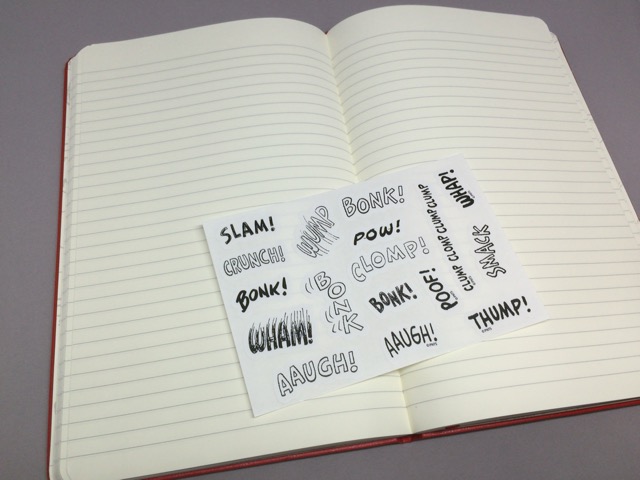 SLAM!
WUMP
BONK!
WHAP!
CRUNCH!
POW!
CLUMP CLOMP CLUMP CLUMP
BONK!
BONK
CLOMP!
SMACK
WHAM!
BONK!
POOF!
AAUGH!
AAUGH!
THUMP!